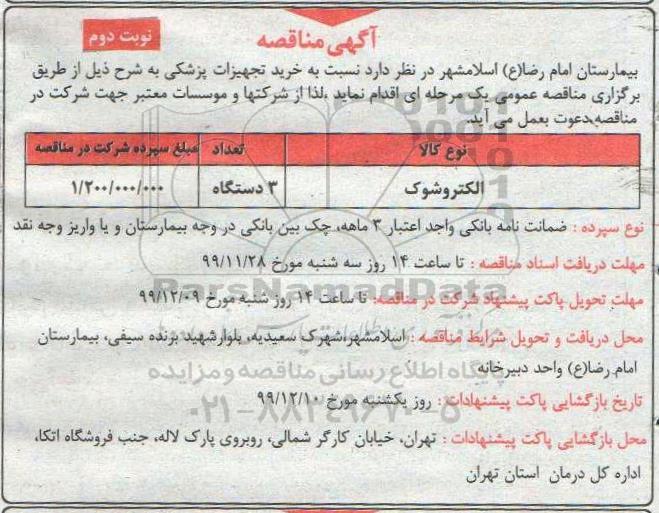 نوبت دوم
آگهی مناقصه
بیمارستان امام رضا(ع) اسلامشهر در نظر دارد نسبت به خرید تجهیزات پزشکی به شرح ذیل از طریق
برگزاری مناقصه عمومی یک مرحله ای اقدام نماید ،لذا از شرکتها و موسسات معتبر جهت شرکت در
مناقصه،دعوت بعمل می آید.
نوع کالا تعداد مبلغ سپرده شرکت در مناقصه
الکتروشوک ۳ دستگاه ۱/۲۰۰/۰۰۰/۰۰۰
نوع سپرده : ضمانت نامه بانکی واجد اعتبار ۳ ماهه، چک بین بانکی در وجه بیمارستان و یا واریز وجه نقد
مهلت دریافت اسناد مناقصه : تا ساعت ۱۴ روز سه شنبه مورخ ۹۹/۱۱/۲۸
مهلت تحویل پاکت پیشنهاد شرکت در مناقصه: تا ساعت ۱۴ روز شنبه مورخ ۹۹/۱۲/۰۹
محل دریافت و تحویل شرایط مناقصه : اسلامشهر،شهرک سعیدیه، بلوارشهید برنده سیفی، بیمارستان
امام رضا(ع) واحد دبیرخانه
تاریخ بازگشایی پاکت پیشنهادات : روز یکشنبه مورخ ۹۹/۱۲/۱۰
محل بازگشایی پاکت پیشنهادات : تهران، خیابان کارگر شمالی، روبروی پارک لاله، جنب فروشگاه اتکا،
اداره کل درمان استان تهران
ParsNamadData
پایگاه اطلاع رسانی مناقصه و مزایده
۰۲۱-۸۸۳۴۹۶۷۰-۵